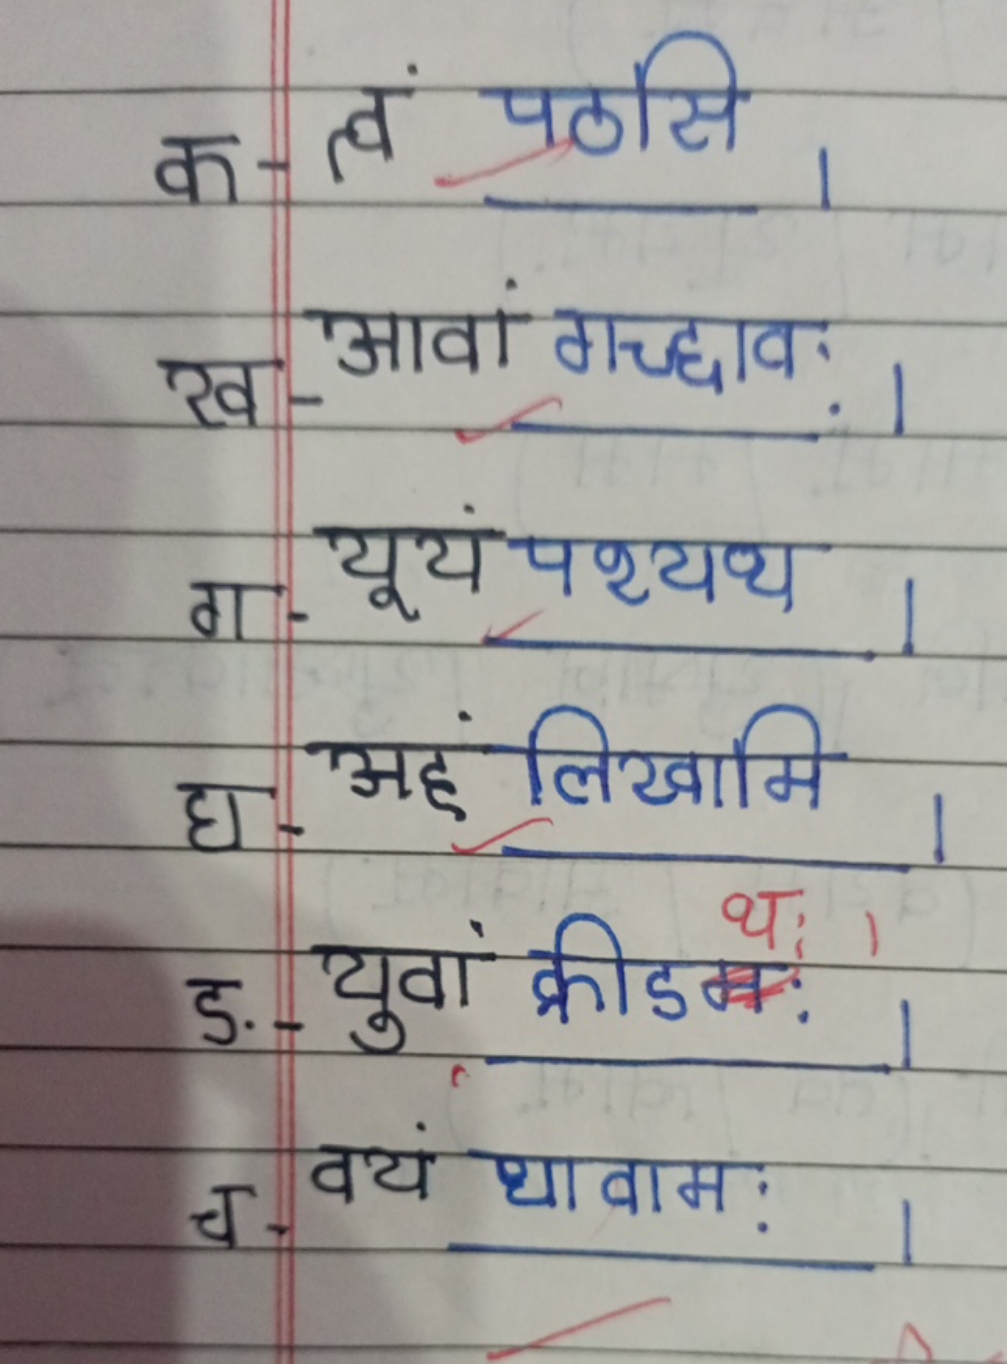 क - त्वं पठसि ।
ख - आवां गच्छावः ।
ग - यूयं पश्यथ ।
घ - अहं लिखामि ।
थः ।
ङ - युवां क्रीडमः ।
च - वयं धावामः ।